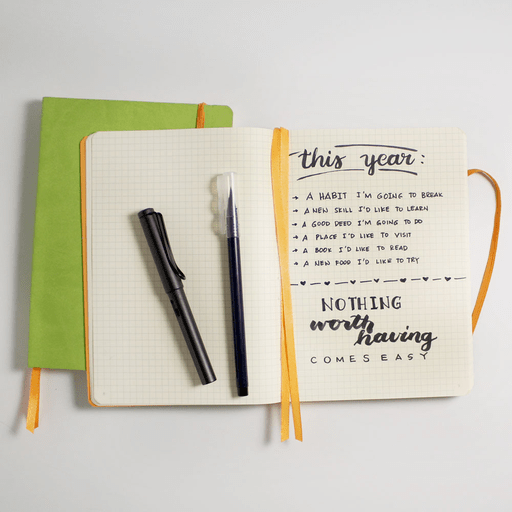 this year:
→ A HABIT I'M GOING TO BREAK
→ A NEW SKILL I'D LIKE TO LEARN
→ A GOOD DEED I'M GOING TO DO
→ A PLACE I'D LIKE TO VISIT
→ A BOOK I'D LIKE TO READ
→ A NEW FOOD I'D LIKE TO TRY
NOTHING
worth
having
COMES EASY